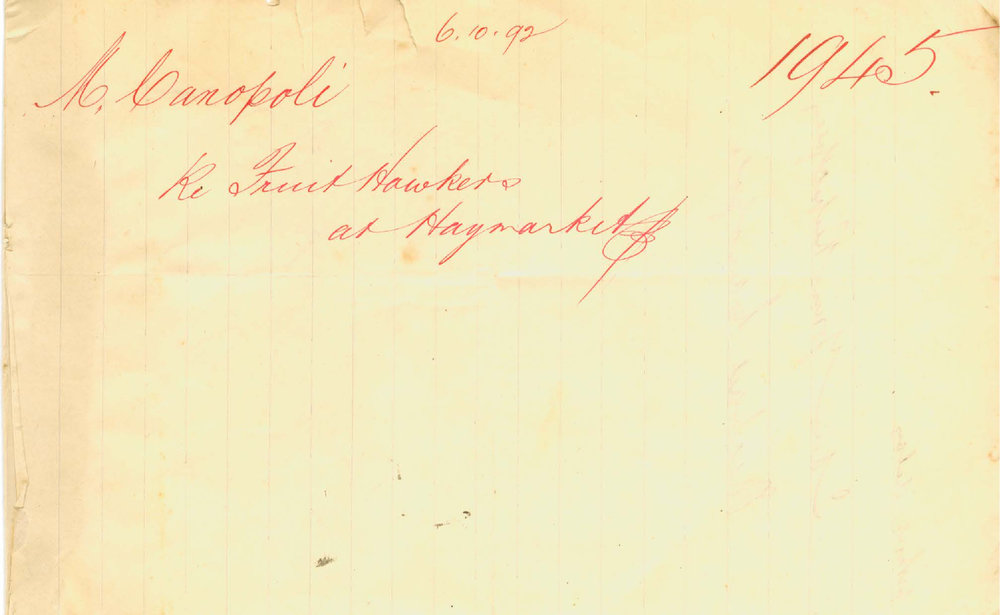 6.10.92
M. Canopoli
1945.
Re Fruit Hawkers
at Haymarket